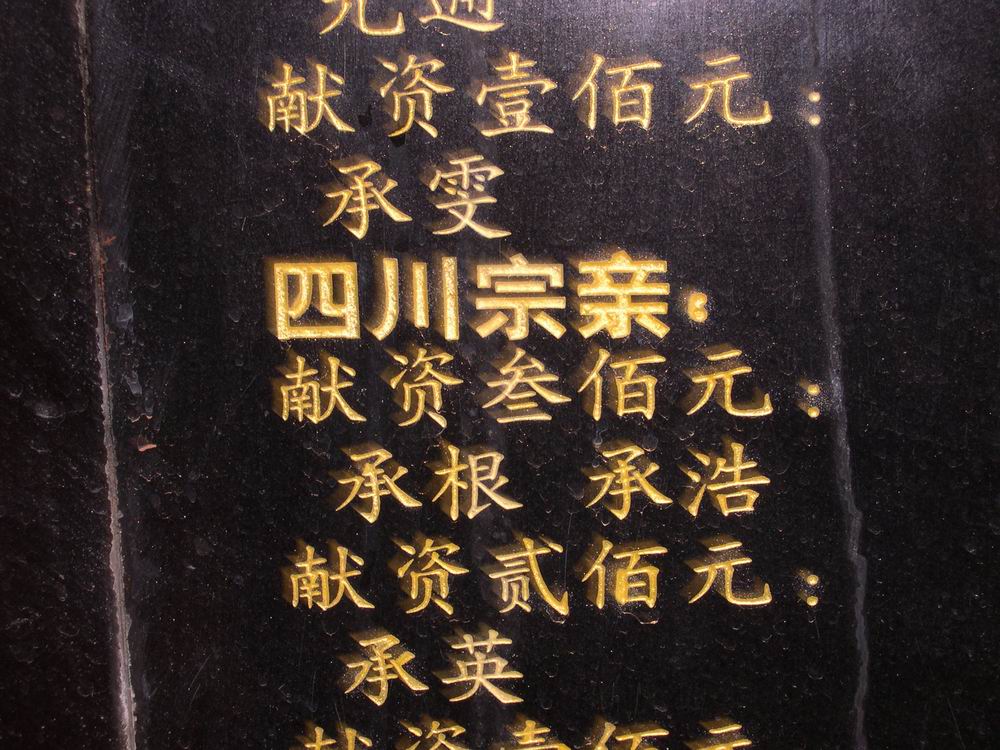 献资壹佰元:
承雯
四川宗亲:
献资叁佰元:
承根 承浩
献资贰佰元:
承英
献资壹佰元